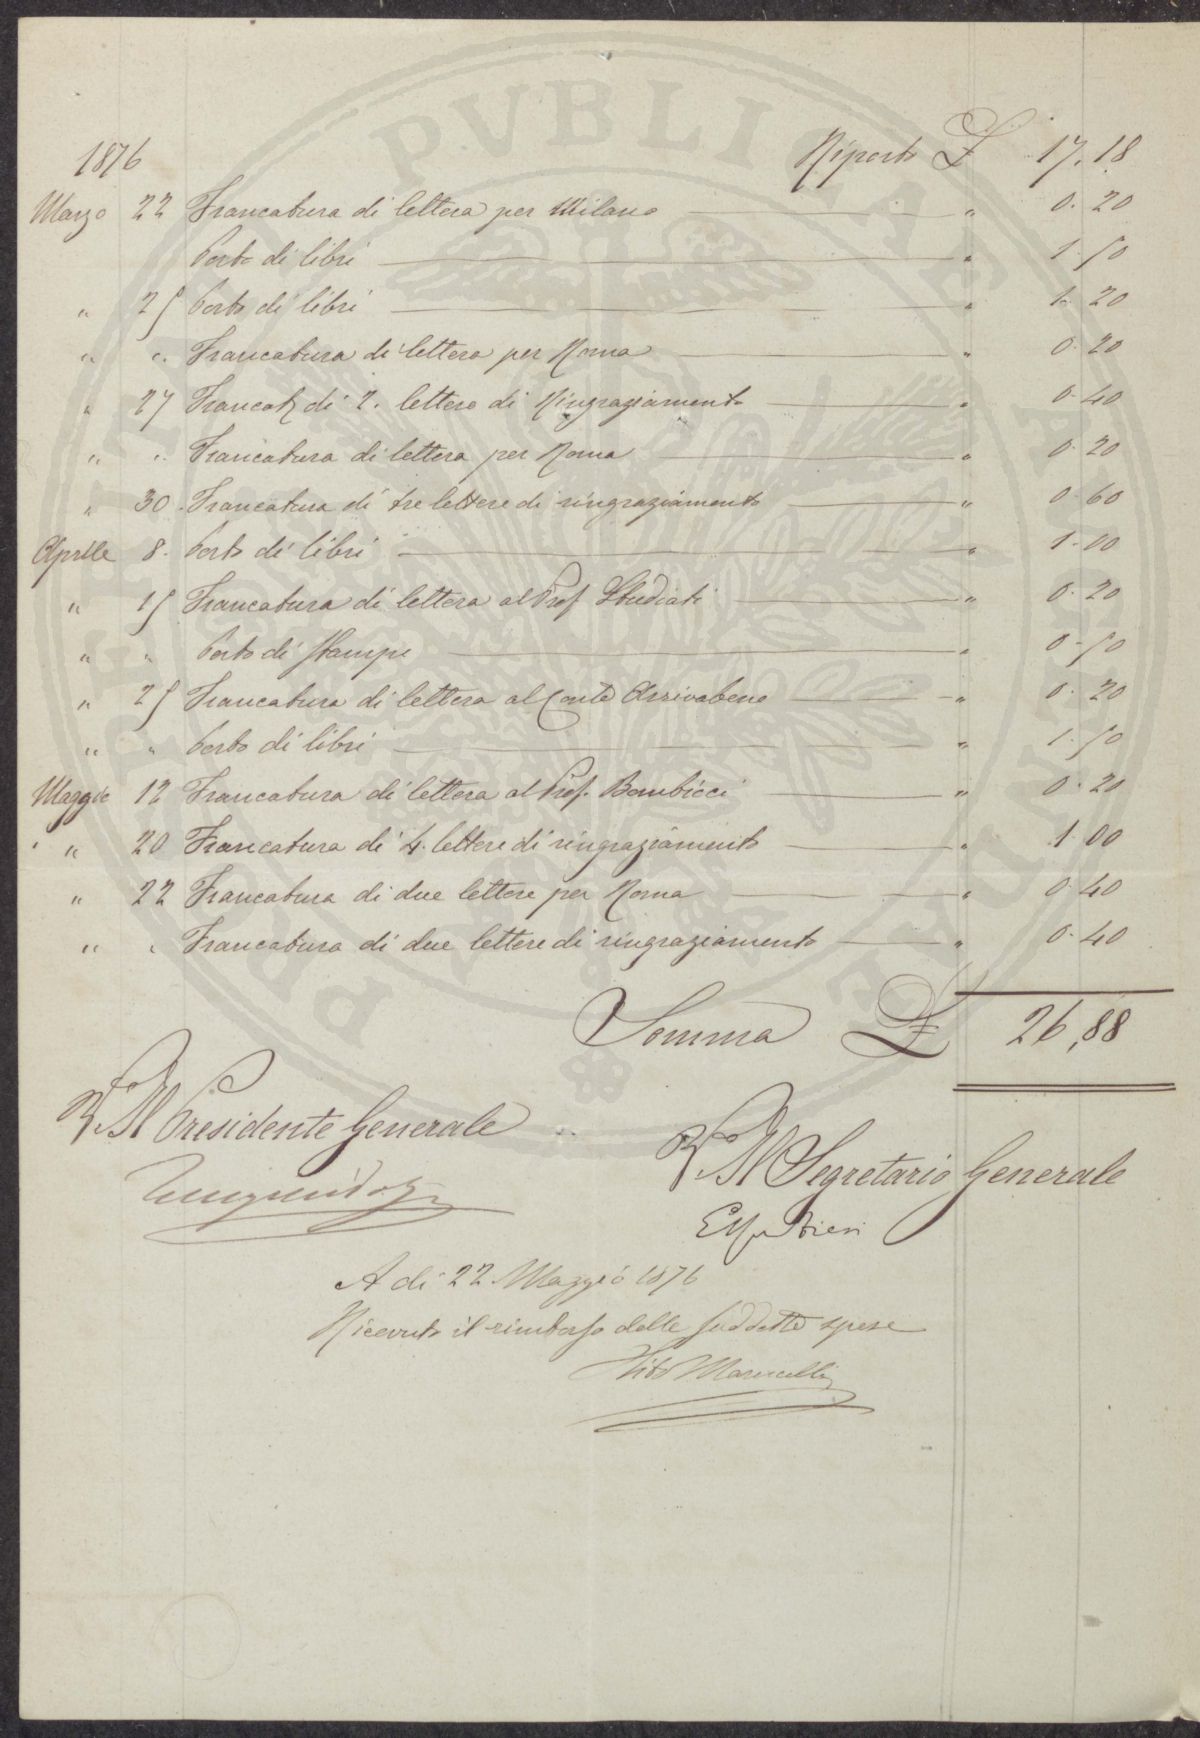 1876 Riporto £ 17.18
Marzo 22 Francatura di lettera per Milano " 0.20
Porto di libri " 1.50
" 25 Porto di libri " 1.20
" " Francatura di lettera per Roma " 0.20
" 27 Francata di 2. lettere di Ringraziamento " 0.40
" " Francatura di lettera per Roma " 0.20
" 30. Francatura di tre lettere di ringraziamento " 0.60
Aprile 8. Porto di libri " 1.00
" 15 Francatura di lettera al Prof Studiati " 0.20
" " Porto di Stampe " 0.50
" 25 Francatura di lettera al Conte Arrivabene " 0.20
" " Porto di libri " 1.50
Maggio 12 Francatura di lettera al Prof. Bombicci " 0.20
" 20 Francatura di 4. lettere di ringraziamento " 1.00
" 22 Francatura di due lettere per Roma " 0.40
" " Francatura di due lettere di ringraziamento " 0.40
Somma £ 26,88
V. Il Presidente Generale
V. Il Segretario Generale
A di 22 Maggio 1876
Ricevuto il rimborso delle suddette spese
Tito Marucelli